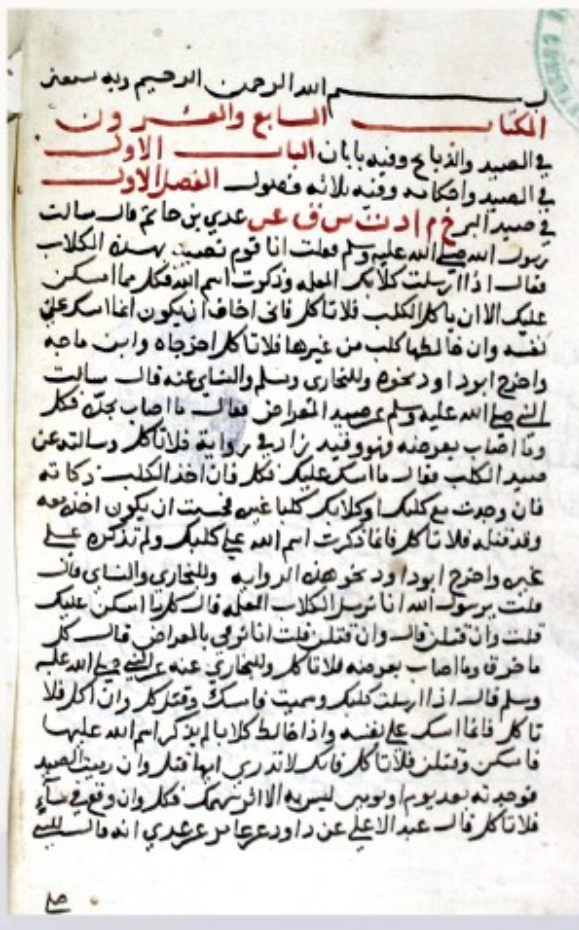 بسم الله الرحمن الرحيم وبه نستعين
الكتاب السابع والعشرون
في الصيد والذبائح وفيه بابان الباب الاول
في الصيد واحكامه وفيه ثلاثة فصول الفصل الاول
في صيد البر خ م ا د ت س ق عن عدي بن حاتم قال سالت
رسول الله صلى الله عليه وسلم فقلت انا قوم نصيد بهذه الكلاب
فقال اذا ارسلت كلابك المعلمه وذكرت اسم الله فكل مما امسكن
عليك الا ان ياكل الكلب فلا تاكل فاني اخاف ان يكون انما امسك على
نفسه وان خالطها كلب من غيرها فلا تاكل اخرجاه وابن ماجه
واخرج ابو داود نحوه وللبخاري ومسلم والنساي عنه قال سالت
النبي صلى الله عليه وسلم عن صيد المعراض فقال ما اصاب بحده فكل
وما اصاب بعرضه فهو وقيد زاد في رواية فلا تاكل وسالته عن
صيد الكلب فقال ما امسك عليك فكل فان اخذ الكلب ذكاته
فان وجدت مع كلبك او كلابك كلبا غيره فخشيت ان يكون اخذه معه
وقد قتله فلا تاكل فانما ذكرت اسم الله على كلبك ولم تذكره على
غيره واخرج ابو داود نحو هذه الروايه وللبخاري والنساي قال
قلت يرسول الله انا نرسل الكلاب المعلمه قال كل ما امسكن عليك
قلت وان قتلن قال وان قتلن قلت انا نرمي بالمعراض قال كل
ما خزق وما اصاب بعرضه فلا تاكل وللبخاري عنه عن النبي صلى الله عليه
وسلم قال اذا ارسلت كلبك وسميت فامسك وقتل فكل وان اكل فلا
تاكل فانما امسك على نفسه واذا خالط كلابا لم يذكر اسم الله عليها
فامسكن وقتلن فلا تاكل فانك لا تدري ايها قتل وان رميت الصيد
فوجدته بعد يوم او يومين ليس به الا اثر سهمك فكل وان وقع في ماء
فلا تاكل قال عبد الاعلى عن داود عن عامر عن عدي انه قال للنبي
صلى